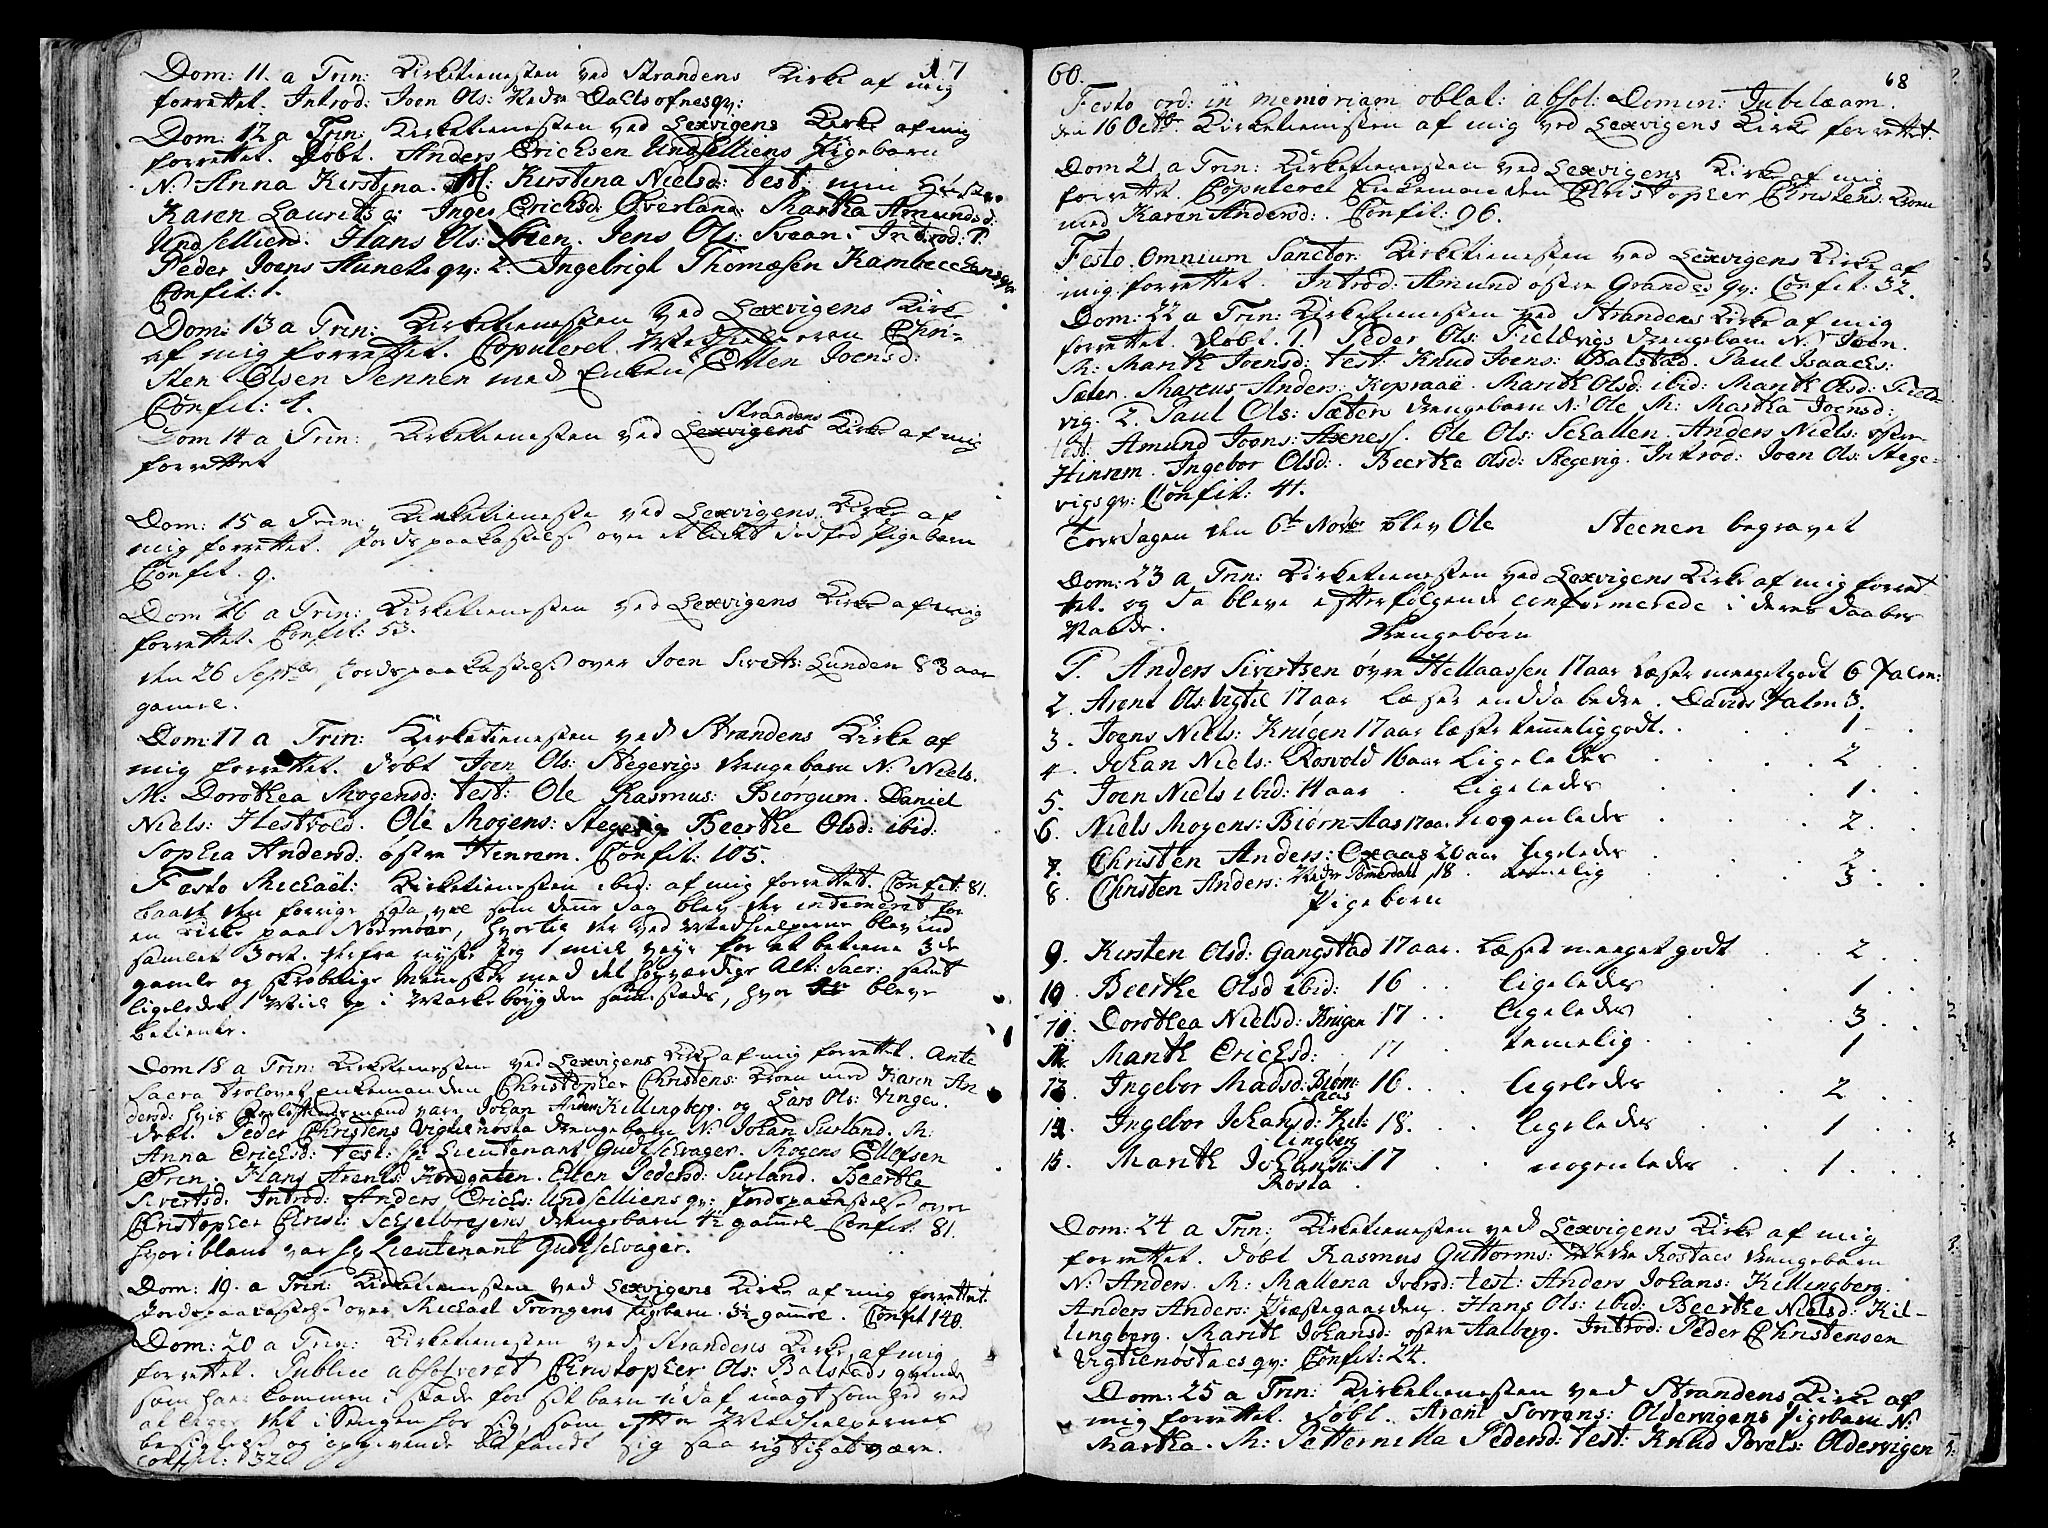 17
Dom: 11. a Trin: Kirketienesten ved Strandens Kirke af mig
forrettet. Introd: Joen Ols: Nedre Dahls ofnes qv:
Dom: 12 a Trin: Kirketienesten ved Lexvigens Kirke af mig
forrettet. Døbt. Anders Ericksen Undselliens Pigebarn
N: Anna Kirstina. M: Kirstina Nielsd: test: min
Karen Laurits Inger Ericksd: Overland. Martha Amundsd:
Undsellien. Hans Ols: Jens Ols: Svaan. Introd: 1.
Peder Joens qv: 2. Ingebrigt Thomæsen
Confit: 1.
Dom: 13 a Trin: Kirketienesten ved Lexvigens Kirke
af mig forrettet. Copuleret Chri-
sten Olsen Pennen med Enken Ellen Joensd:
Confit: 1.
Strandens
Dom 14 a Trin: Kirketienesten ved Lexvigens Kirke af mig
forrettet
Dom: 15 a Trin: Kirketieneste ved Lexvigens Kirke af
mig forrettet. Jordspaakastelse over et lidet dødfød Pigebarn
Confit. 9.
Dom 16 a Trin: Kirketienesten ved Lexvigens Kirke af mig
forrettet. Confit: 53.
den 26 Septr Jordspaakastelse over Joen Siverts: Lunden 83 aar
gamel.
Dom: 17 a Trin: Kirketienesten ved Strandens Kirke af
mig forrettet. døbt Joen Ols: Stegevigs drengebarn N: Niels.
M: Dorothea Mogensd: test: Ole Rasmus: Biørgum. Daniel
Niels: Hestvold. Ole Mogens: Stegevig Beerthe Olsd: ibid:
Sophia Andersd: østre Henrem. Confit: 105.
Festo Michaël: Kirketienesten ibid: af mig forrettet. Confit: 81.
baade den forrige Sødag vel som denne dag blev der for
en Kirke paa Nordmoer, hvortil der ved Medhielperne blev ind
samlet 3 ort. derfra reyste jeg 1 miil veys for at betiene 3de
gamle og skrøbelige Mennesker med det høyværdige Alt: Sacr: samt
ligeledes 1 Miil op i Markebøygden hvor bleve
betiente.
Dom 18 a Trin: Kirketienesten ved Lexvigens Kirke af mig forrettet. Ante
Sacra trolovet Enkemanden Christopher Christens: Kroen med Karen An
dersd: hvis Forlovelsesmænd vare Johan Anders Killingberg. og Lars Ols: Vinge.
døbt. Peder Christens Vigtilnøsta drengebarn N: Johan Surland. M:
Anna Ericksd: test: Hr Lieutenant Gudschvager. Mogens Ellefsen
Hans Arents: Ellen Pedersd: Surland. Beerthe
Sivertsd. Introd: Anders Ericks: Undselliens qv: Jordspakastelse over
Christopher Christ: drengebarn gamel Confit. 81.
hvoriblant var hr Lieutenant Gudschvager.
Dom: 19. a Trin: Kirketienesten ved Lexvigens Kirke af mig forrettet.
Jordspaakastelse over Michael Trongens Pigebarn. gamel. Confit 140.
Dom: 20 a Trin: Kirketienesten ved Strandens Kirke af mig
forrettet. Publice absolveret Christopher Ols: Balstads qvinde
som haver kommen i skade for sit barn udaf magt som hed ved
at legge det i Sengen hos sig, som efter Medhielpernes
besigtelse og opgivende befandt sig saa rigtig at være.
Confit: 132
60. 68
Festo ord: in memoriam oblat: absol: Domin: Jubilæum.
den 16 Octbr. Kirketienesten af mig ved Lexvigens Kirke forrettet.
Dom 21 a Trin: Kirketienesten ved Lexvigens Kirke af mig
forrettet. Copuleret Enkemanden Christopher Christens: Kroen
med Karen Andersd: Confit: 96.
Festo Omnium Sanctor: Kirketienesten ved Lexvigens Kirke af
mig forrettet. Introd: Amund østre Grandes qv: Confit: 32.
Dom: 22 a Trin: Kirketienesten ved Strandens Kirke af mig
forrettet. Døbt. 1. Peder Ols: Fieldvigs drengebarn N: Joen.
M: Marith Joensd: test: Knud Joens: Balstad. Paul Isaachs:
Sæter. Marcus Anders: Kopraae. Marith Olsd: ibid: Marith Olsd: Field-
vig. 2. Paul Ols: Sæters drengebarn N: Ole M: Martha Joensd:
test: Amund Joens: Axness. Ole Ols: Schallen. Anders Niels: østre
Hinrem. Ingebor Olsd: Beerthe Olsd: Stegevig. Introd: Joen Ols: Stege-
vigs qv: Confit: 41.
Torsdagen den 6te Novbr blev Ole Steenen begravet
Dom: 23 a Trin: Kirketienesten ved Lexvigens Kirke af mig forret
tet. og da bleve efterfølgende confirmerede i deres daabes
Naade. Drengebørn
1. Anders Sivertsen øvre Hellaassen 17 aar læser meeget godt 6 Psalm:
2. Arent Ols: Vigtil 17 aar læser endda bedre. Davids Psalm 3.
3. Joens Niels: Krigen 17 aar læser temelig godt. 1
4. Johan Niels: Rosvold 16 aar Ligeledes 2
5. Joen Niels ibid: 14 aar Ligeledes 1
6. Niels Mogens: Biørn-Aas 17 aar nogenledes 2
7. Christen Anders: Oxaas 20 aar ligeledes 2
8. Christen Anders: Nedre 18 temelig 3
Pigebørn
9. Kirsten Olsd: Gangstad 17 aar. læser meeget godt 2
10 Beerthe Olsd ibid: 16 ligeledes 1
11. Dorothea Nielsd: Krigen 17 ligeledes 3
12. Marith Ericksd: 17 temelig 1
13 Ingebor Madsd: Biørn- 16 ligeledes 2
aas
14 Ingebor Johansd: Kil- 18. ligeledes 1
lingberg
15. Marith Johansd: 17 nogenledes 1
Rosta
Dom: 24 a Trin: Kirketienesten ved Lexvigens Kirke af mig
forrettet. døbt Rasmus Guttorms: Nedre Rostaes drengebarn
N: Anders. M: Mallena Iversd: test: Anders Johans: Killingberg.
Anders Anders: Præstegaarden. Hans Ols: ibid: Beerthe Nielsd: Kil-
lingberg. Marith Johansd: østre Aalberg. Introd: Peder Christensen
Vigtilnøstaes qv: Confit: 24.
Dom: 25 a Trin: Kirketienesten ved Strandens Kirke af
mig forrettet. døbt. Arent Sørrens: Oldervigens Pigebarn N:
Martha. M: Petternilla Pedersd: test: Knud Povels: Oldervigen